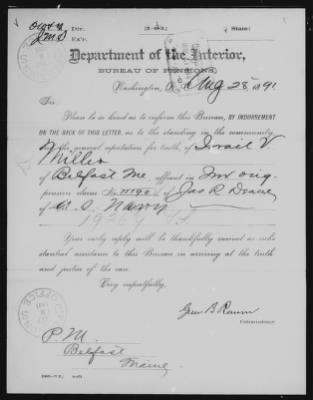 Div.
Ex'r.
State:
Department of the Interior,
BUREAU OF PENSIONS,
Washington, D. C., Aug 28, 1891
Sir:
Please be so kind as to inform this Bureau, BY INDORSEMENT
ON THE BACK OF THIS LETTER, as to the standing in the community
and the general reputation for truth, of Israil V
Miller
of Belfast Me., affiant in Inv orig.
pension claim No. of Jas R Deane
of U. S. Navy
Your early reply will be thankfully received as sub-
stantial assistance to this Bureau in arriving at the truth
and justice of the case.
Very respectfully,
Green B. Raum
Commissioner.
P. M.
Belfast
Maine